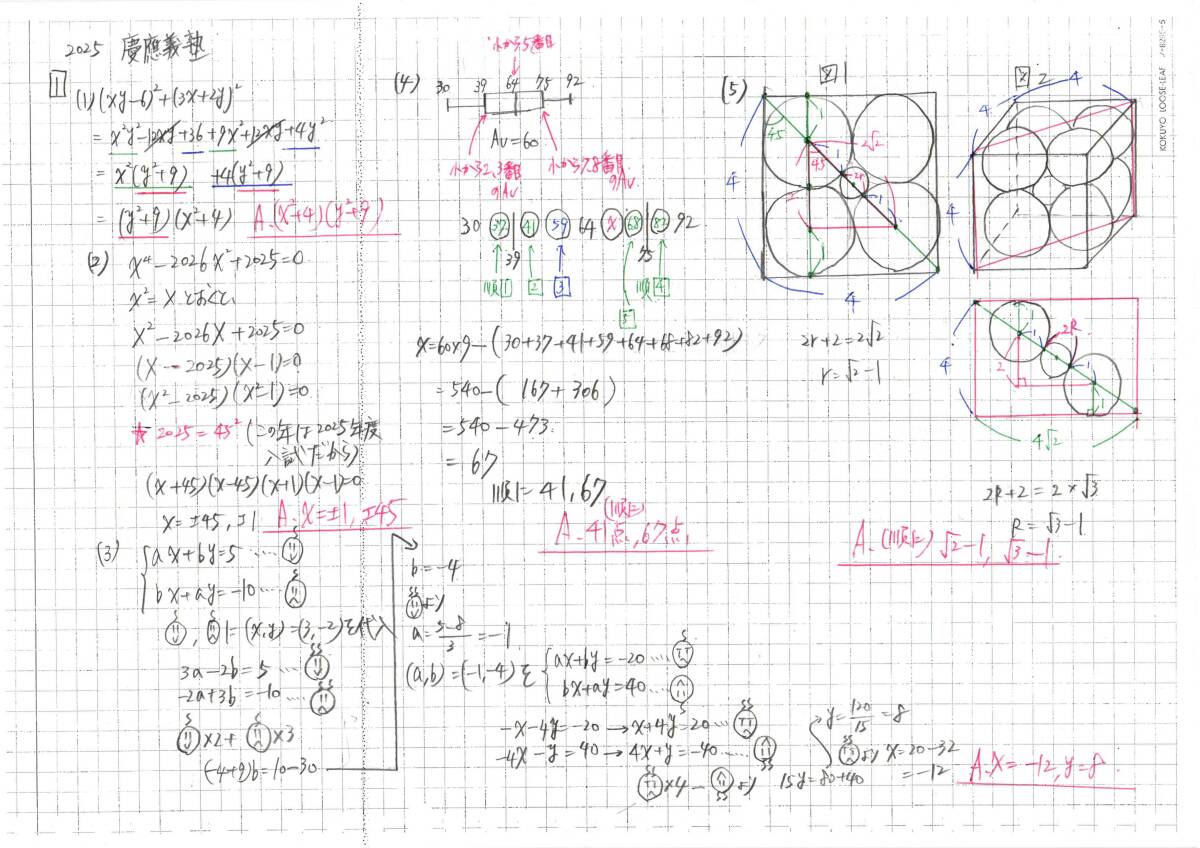 2025 慶應義塾
1
(1) (xy-6)²+(3x+2y)²
= x²y²-12xy+36+9x²+12xy+4y²
= x²(y²+9) +4(y²+9)
= (y²+9)(x²+4) A.(x²+4)(y²+9)
(2) x⁴-2026x²+2025=0
x²=Xとおくと、
X²-2026X+2025=0
(X-2025)(X-1)=0
(x²-2025)(x²-1)=0
★2025=45² (この年は2025年度
入試だから)
(x+45)(x-45)(x+1)(x-1)=0
x=±45, ±1 A.x=±1, ±45
(3) ax+by=5 ……
bx+ay=-10 ……
, に(x,y)=(3,-2)を代入
3a-2b=5 ……
-2a+3b=-10 ……
×2+ ×3
(-4+9)b=10-30
b=-4
より
a=5-8/3=-1
(a,b)=(-1,-4)を
ax+by=-20 ……
bx+ay=40 ……
-x-4y=-20→x+4y=20 ……
-4x-y=40→4x+y=-40 ……
×4- より 15y=80+40
y=120/15=8
より x=20-32
=-12
A.x=-12, y=8.
(4)
小から5番目
30 39 64 75 92
Av=60
小から2,3番目
のAv
小から7,8番目
のAv.
30 37 41 59 64 x 68 82 92
39 75
順1 2 3 5 順4
x=60×9-(30+37+41+59+64+68+82+92)
=540-(167+306)
=540-473
=67
順に41,67
(順に)
A.41点,67点
(5)
図1
4
45
2√2
45
1
2r
1
2
1
4
4
2r+2=2√2
r=√2-1
図2
4
4
4
4
2R
1
1
2
1
4√2
2R+2=2×√3
R=√3-1
A.(順に)√2-1, √3-1.
KOKUYO LOOSE-LEAF